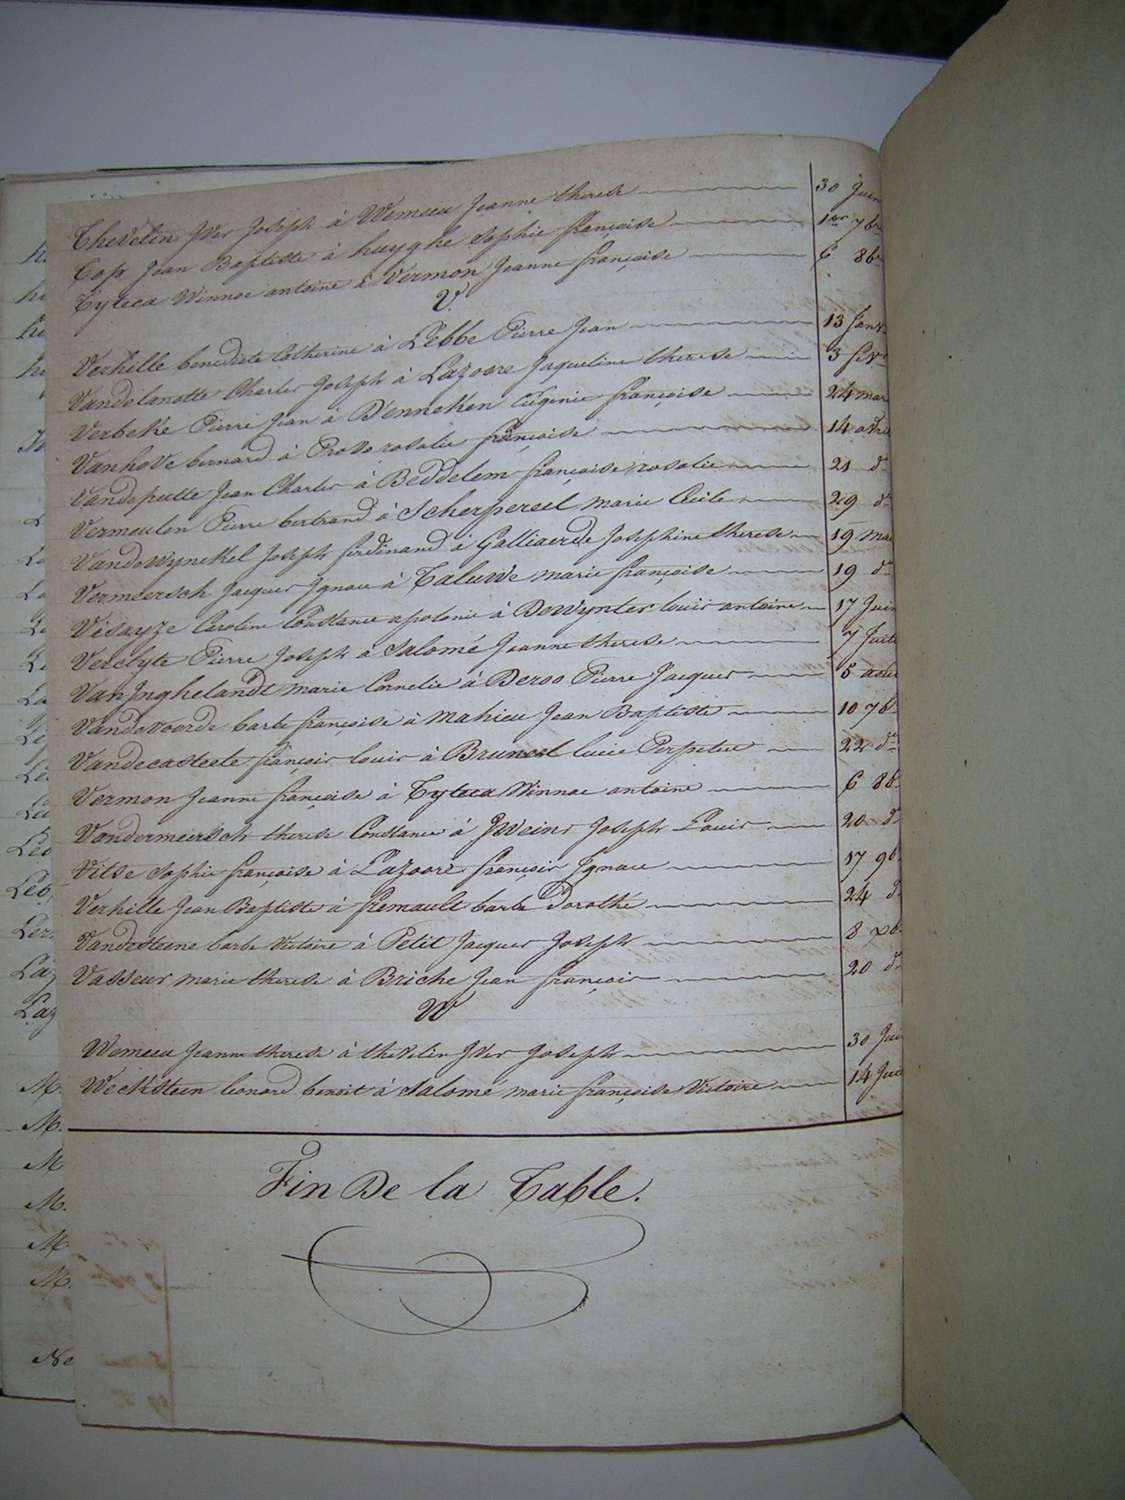 Thevelin Yves Joseph à Wemeeu Jeanne therese 30 Juin
Top Jean Baptiste à huyghe Sophie françoise 1er 7bre
Tyteca Winnoc antoine à Vermon Jeanne françoise 6 8b
V.
Verhille benedicte Catherine à Lebbe Pierre Jean 13 Janv
Vandelanotte Charles Joseph à Lazoore Jaqueline therese 3 fevr
Verbeke Pierre Jean à Denneken Eugenie françoise 24 mar
Vanhove bernard à Provo rosalie françoise 14 avri
Vandeputte Jean Charles à Beddelem françoise rosalie 21 do
Vermeulen Pierre bertrand à Scherpereel marie Cecile 29 do
Vandewynckel Joseph ferdinand à Galliaerde Josephine therese 19 mai
Vermeersch Jacques Ignace à Taluwe marie françoise 19 do
Visayze Caroline Constance apolonie à Dewynter louis antoine 17 Juin
Verclyte Pierre Joseph à Salomé Jeanne therese 7 Juil
VanInghelandt marie Cornelie à Deroo Pierre Jacques 5 aout
Vandevoorde barbe françoise à Mahieu Jean Baptiste 10 7b
Vandecasteele françois louis à Bruneel lucie Perpetue 22 do
Vermon Jeanne françoise à Tyteca Winnoc antoine 6 8b
Vandermeersch therese Constance à Yweins Joseph Louis 20 d
Vitse Sophie françoise à Lazoore françois Ignace 17 9b
Verhille Jean Baptiste à fremault barbe Dorothé 24 d
Vandesteene barbe Victoire à Petit Jacques Joseph 8 xb
Vasseur marie therese à Briche Jean françois 20 d
W
Wemeeu Jeanne therese à thevelin Yves Joseph 30 Jui
Weeksteen leonard benoit à Salomé marie françoise Victoire 14 Jui
Fin De la Table.